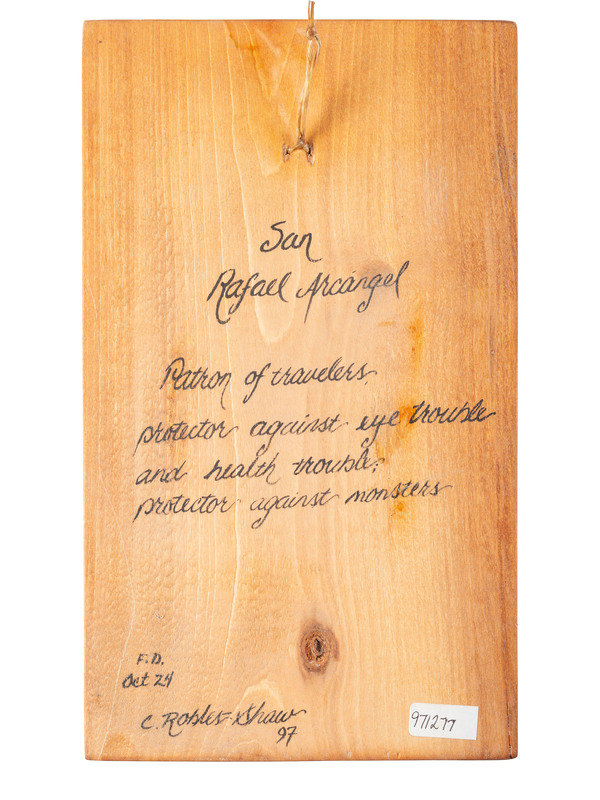 San
Rafael Arcángel
Patron of travelers,
protector against eye trouble
and health trouble;
protector against monsters
F.D.
Oct 24
C. Robles-Shaw
97
971277